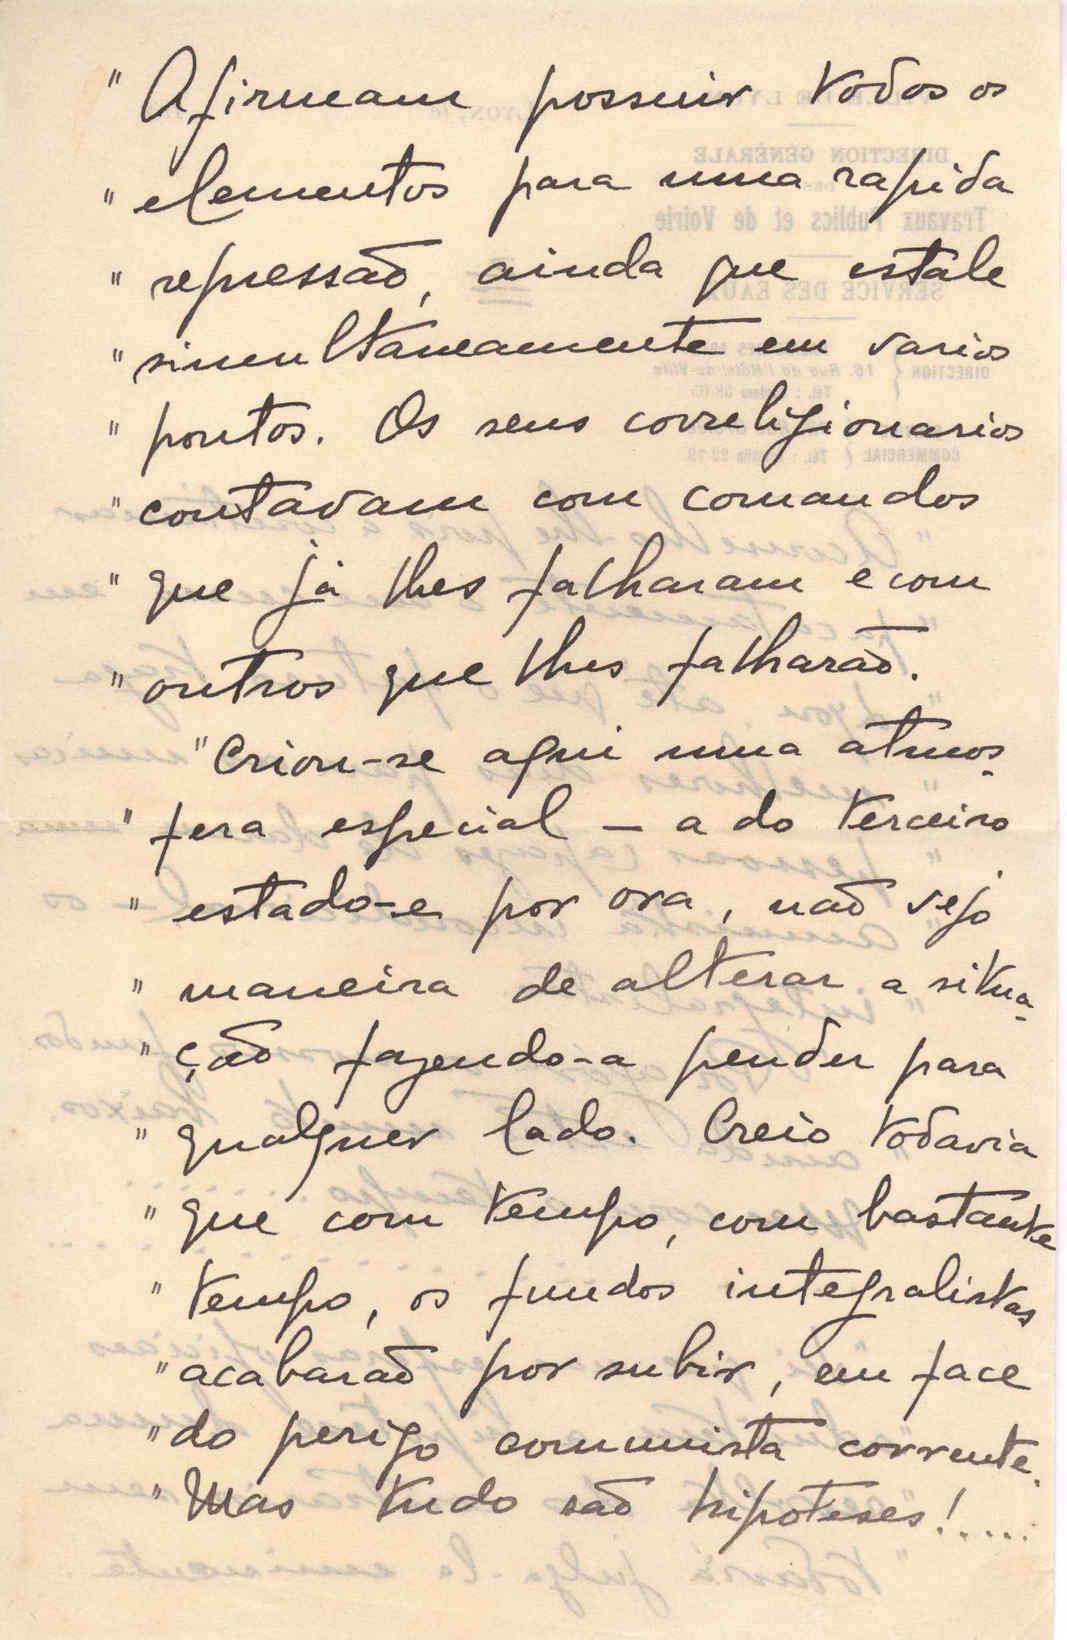 " Afirmam possuir todos os
" elementos para uma rapida
" repressão, ainda que estale
" simultaneamente em varios
" pontos. Os seus correligionarios
" contavam com comandos
" que já lhes falharam e com
" outros que lhes falharão.
"Criou-se aqui uma atmos-
" fera especial — a do terceiro
" estado-e por ora, não vejo
" maneira de alterar a situa-
" ção fazendo-a pender para
" qualquer lado. Creio todavia
" que com tempo, com bastante
" tempo, os fundos integralistas
" acabarão por subir, em face
" do perigo communista corrente.
" Mas tudo são hipoteses!.....